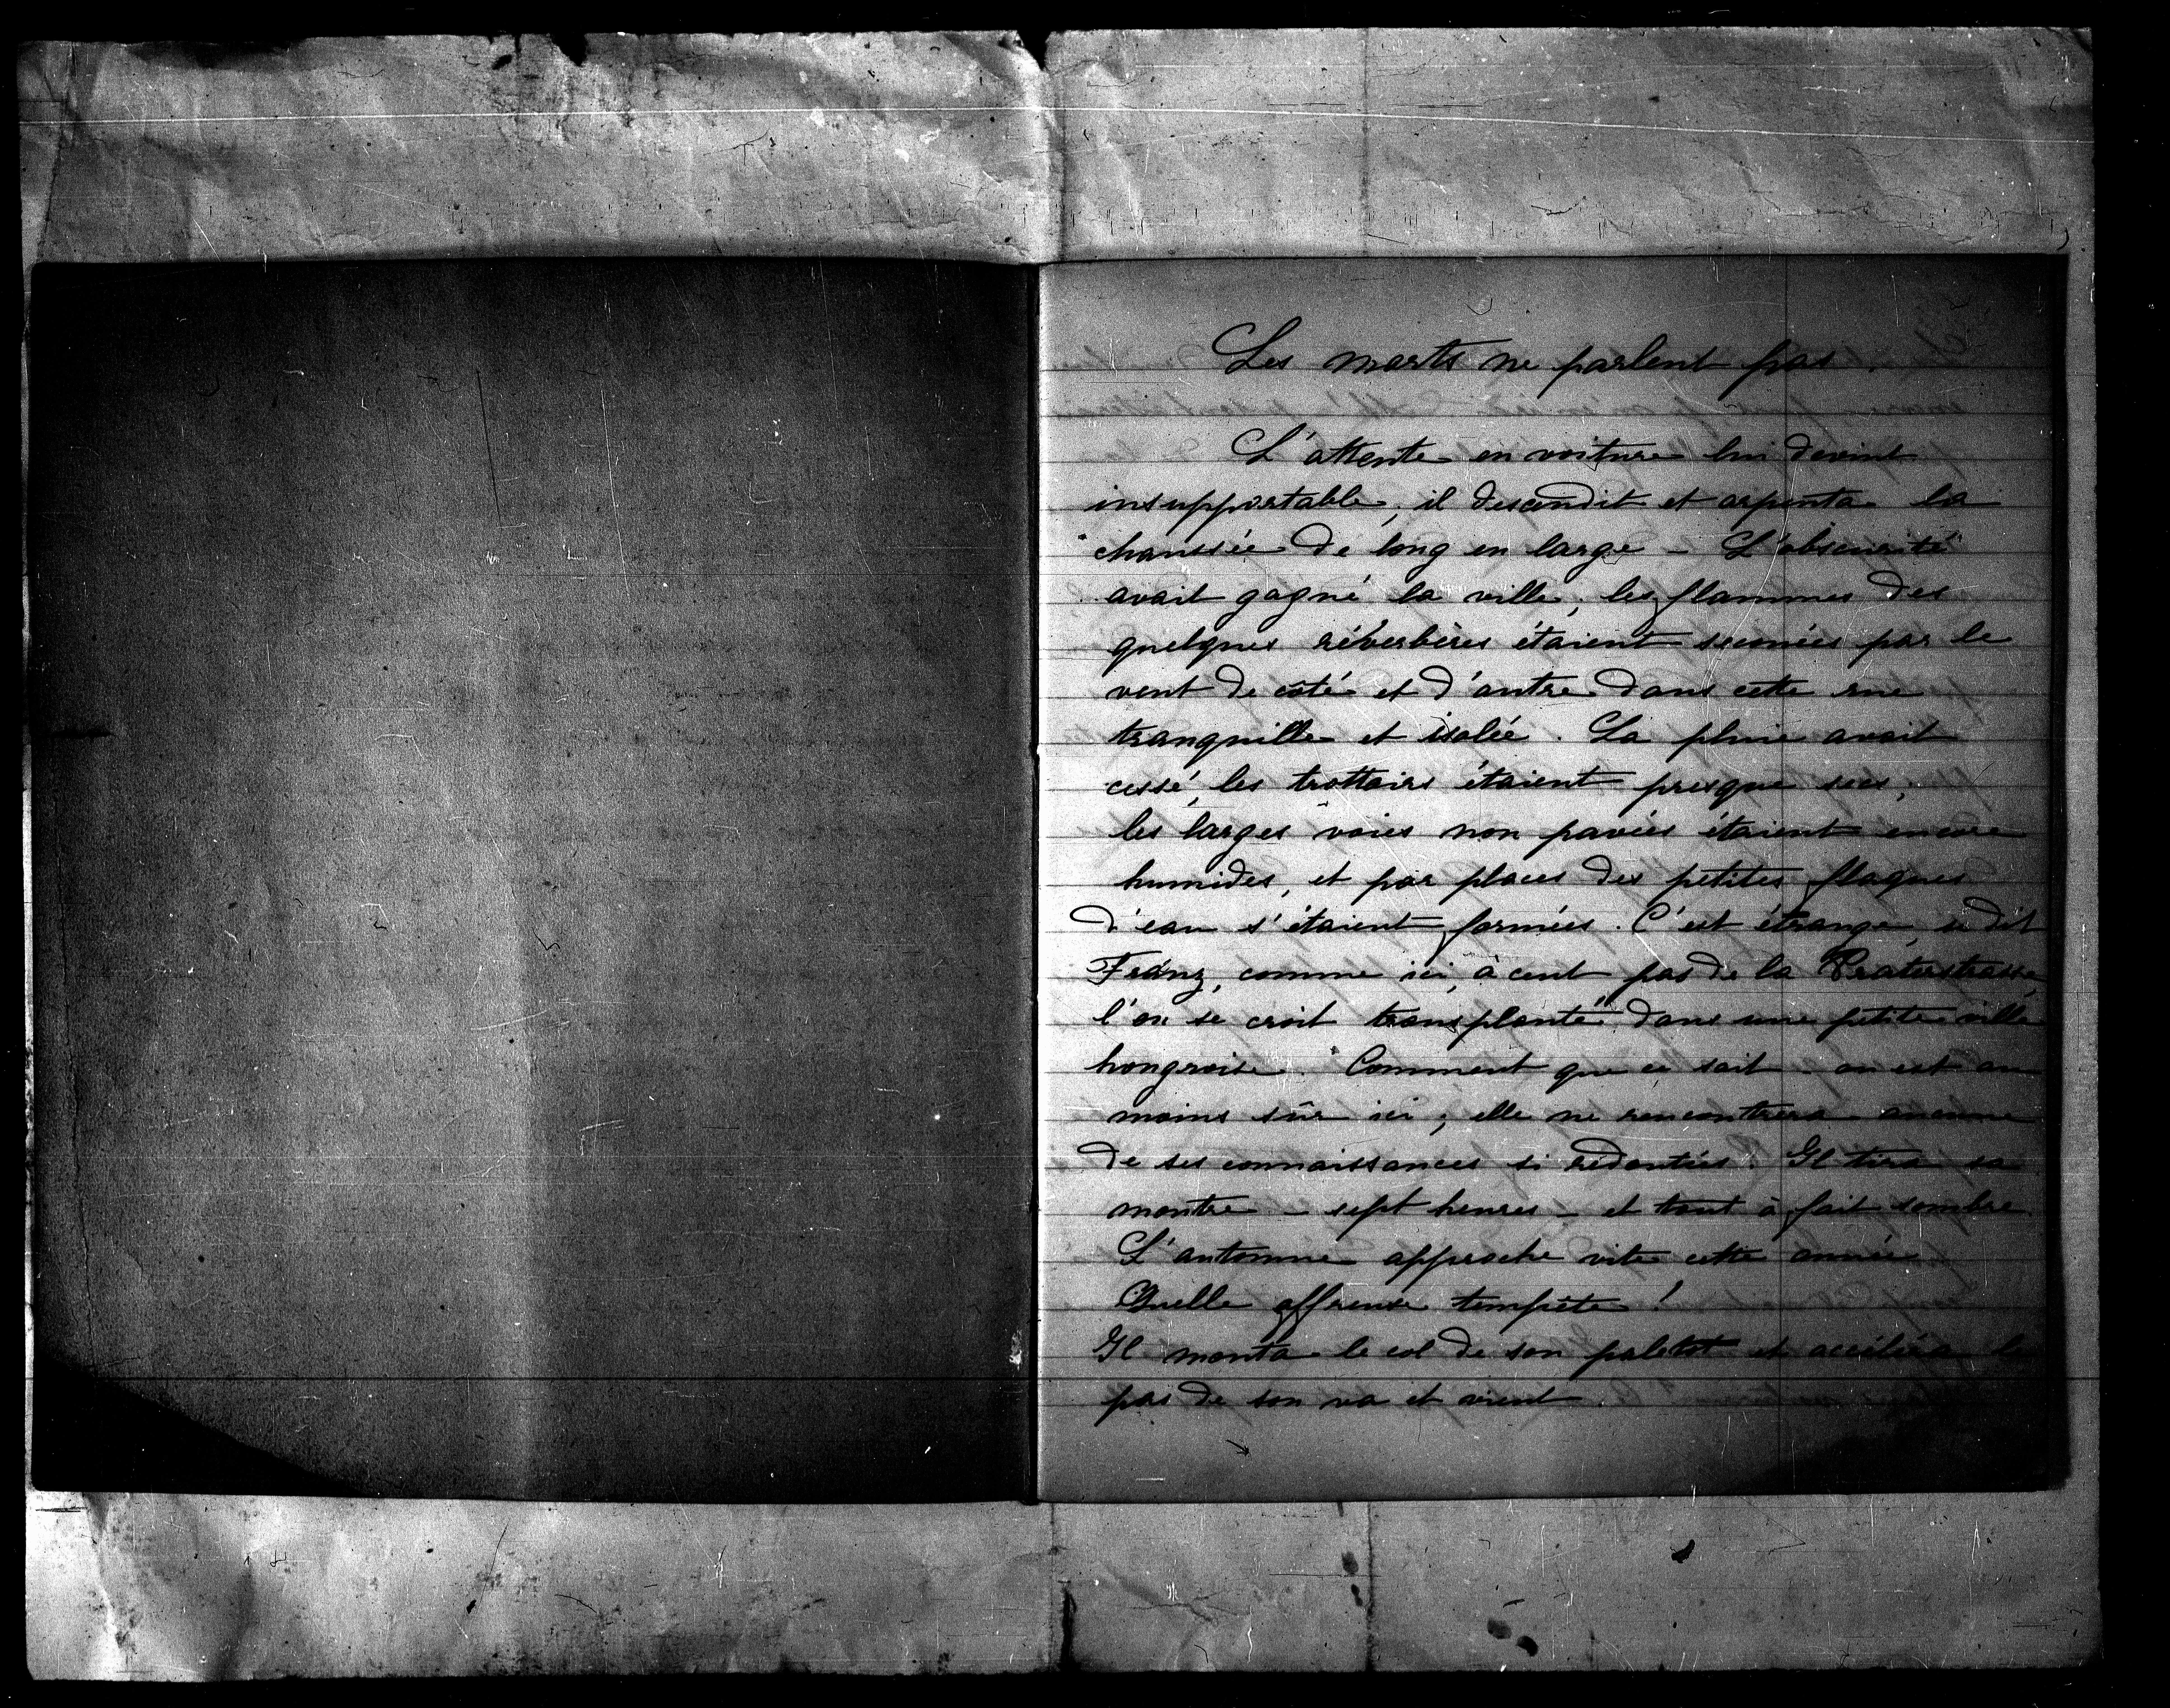 Les morts ne parlent pas.
L'attente en voiture lui devint
insupportable; il descendit et arpenta la
chaussée de long en large – L'obscurité
avait gagné la ville, les flammes des
quelques réverbères étaient secouées par le
vent de côté et d'autre dans cette rue
tranquille et isolée. La pluie avait
cessé, les trottoirs étaient presque secs;
les larges voies non pavées étaient encore
humides, et par places des petites flaques
d'eau s'étaient formées. C'est étrange, se dit
Franz, comme ici, à cent pas de la Praterstrasse,
l'on se croit transplanté dans une petite ville
hongroise. Comment que ce soit – on est au
moins sûr ici; elle ne rencontrera aucune
de ses connaissances si redoutées. Il tira sa
montre – sept heures – et tout à fait sombre.
L'automne approche vite cette année.
Quelle affreuse tempête!
Il monta le col de son paletot et accéléra le
pas de son va et vient.